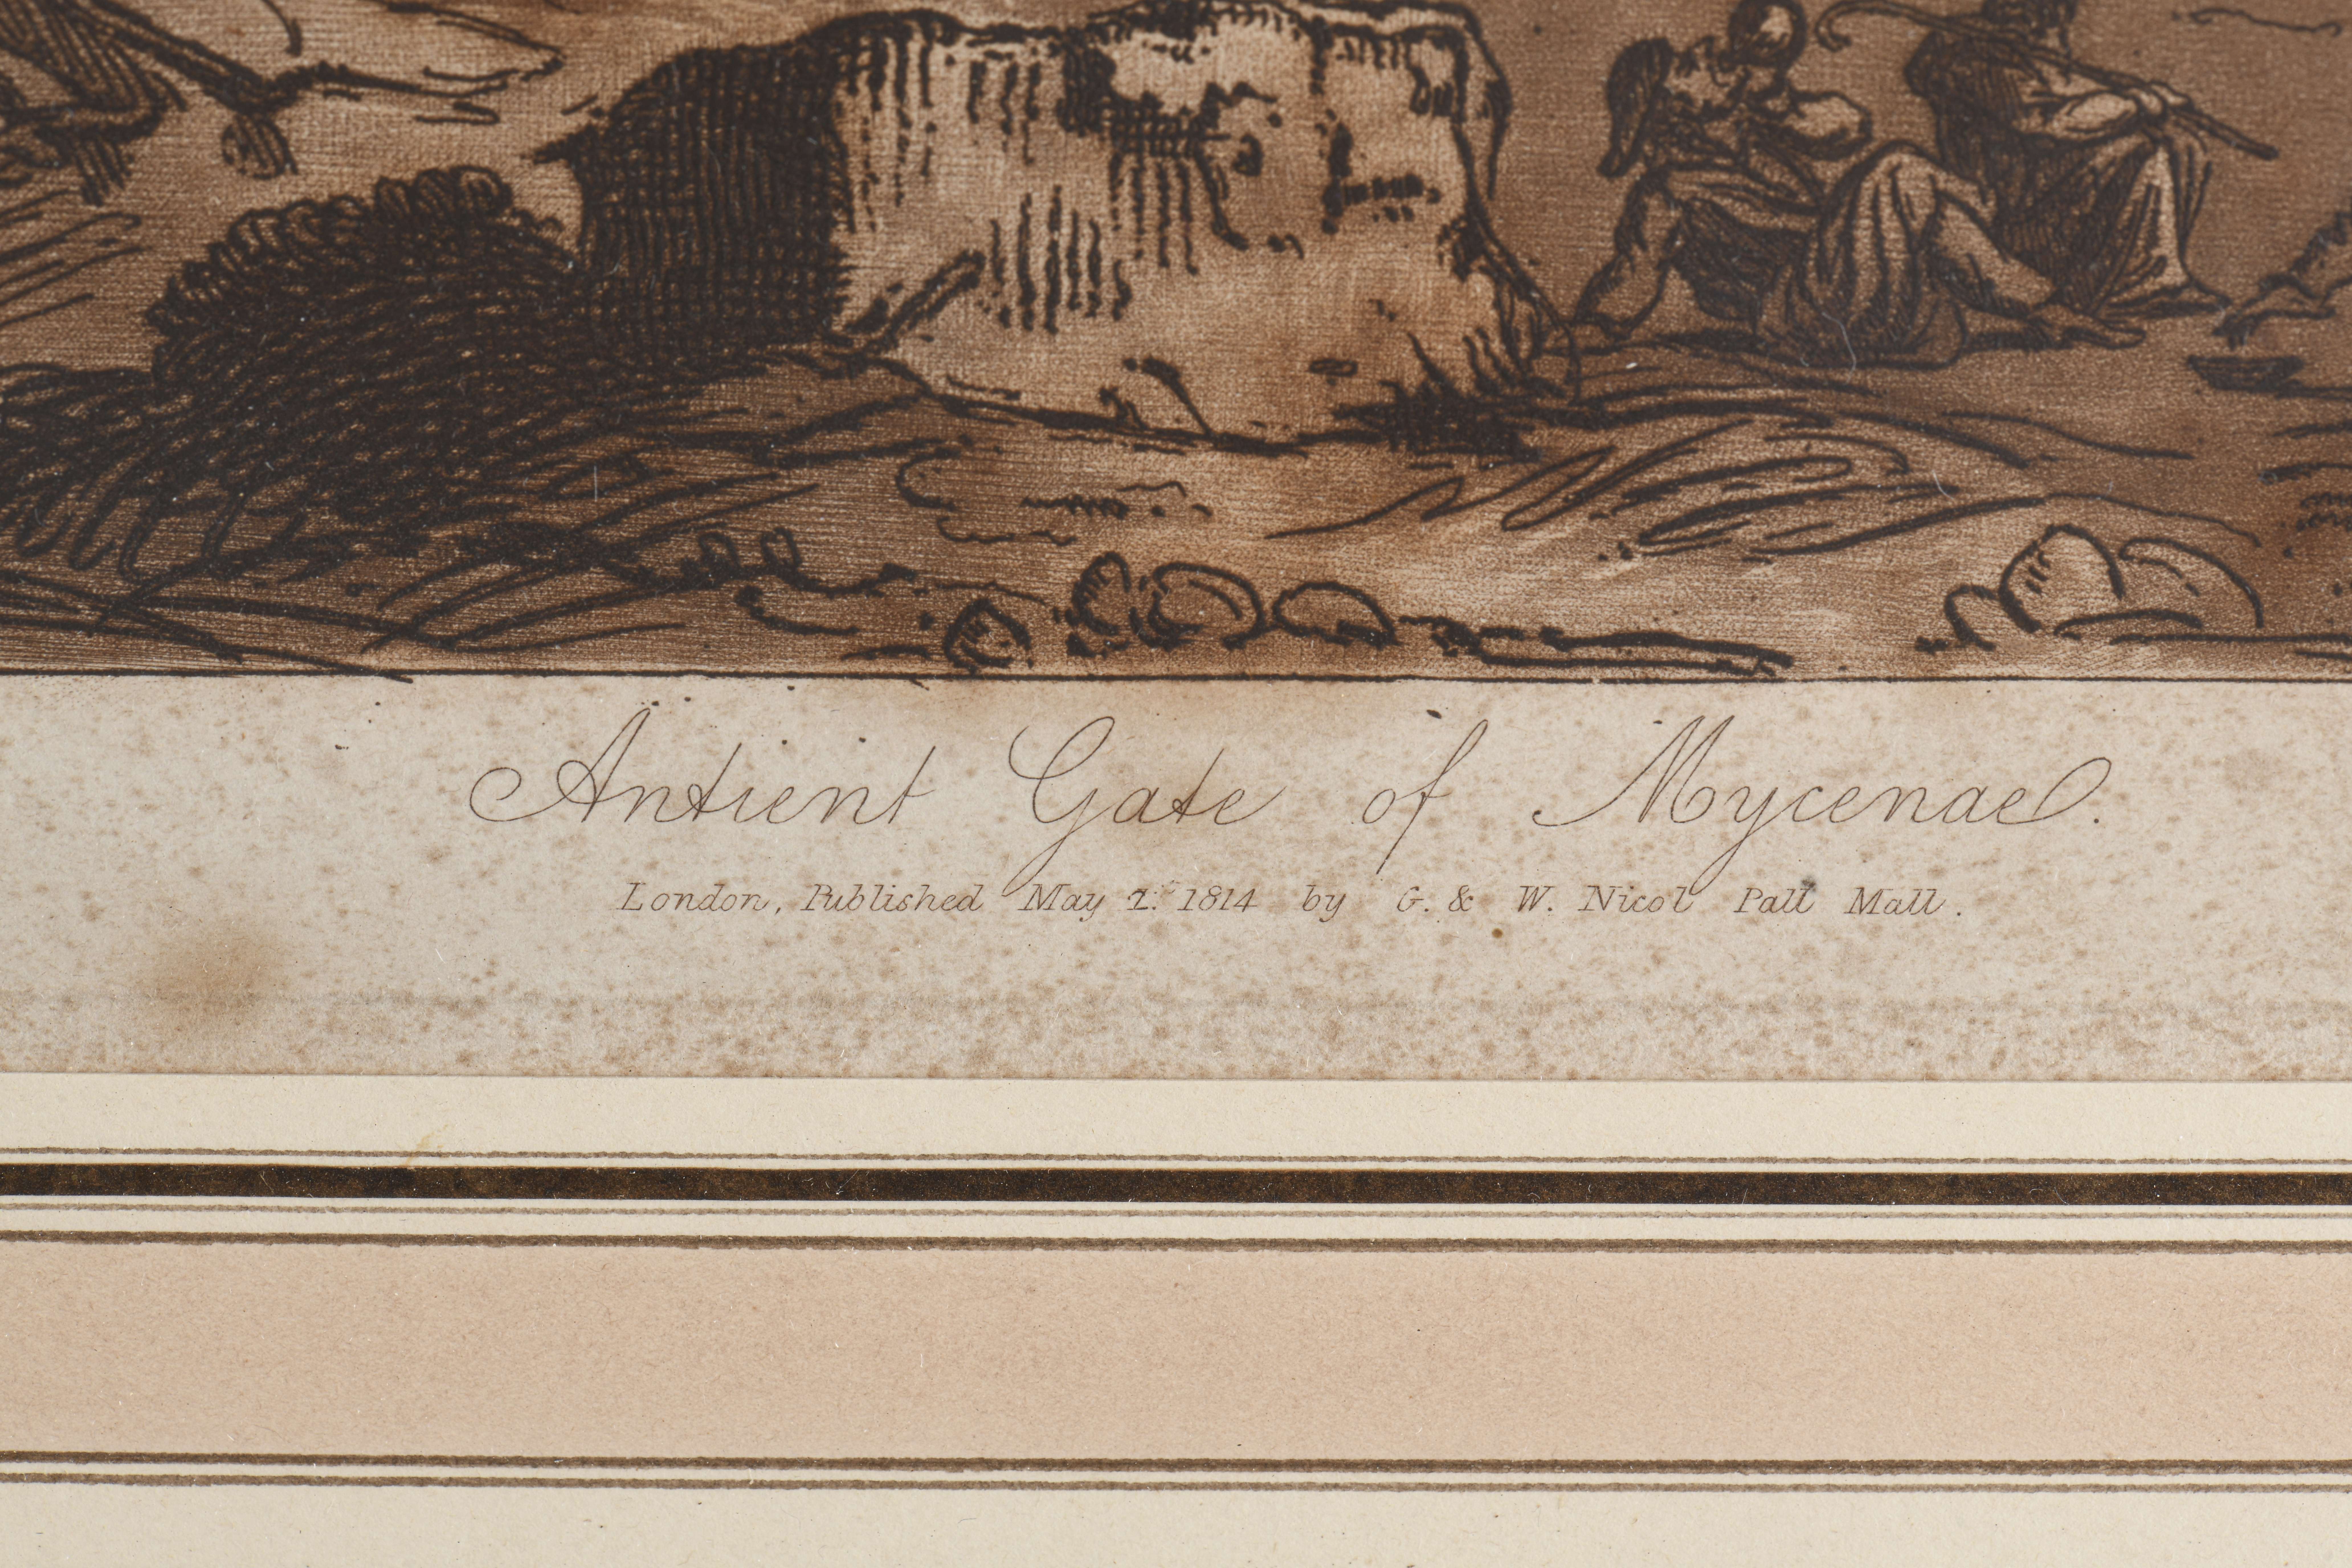 Antient Gate of Mycenae.
London, Published May 1st 1814 by G. & W. Nicol Pall Mall.